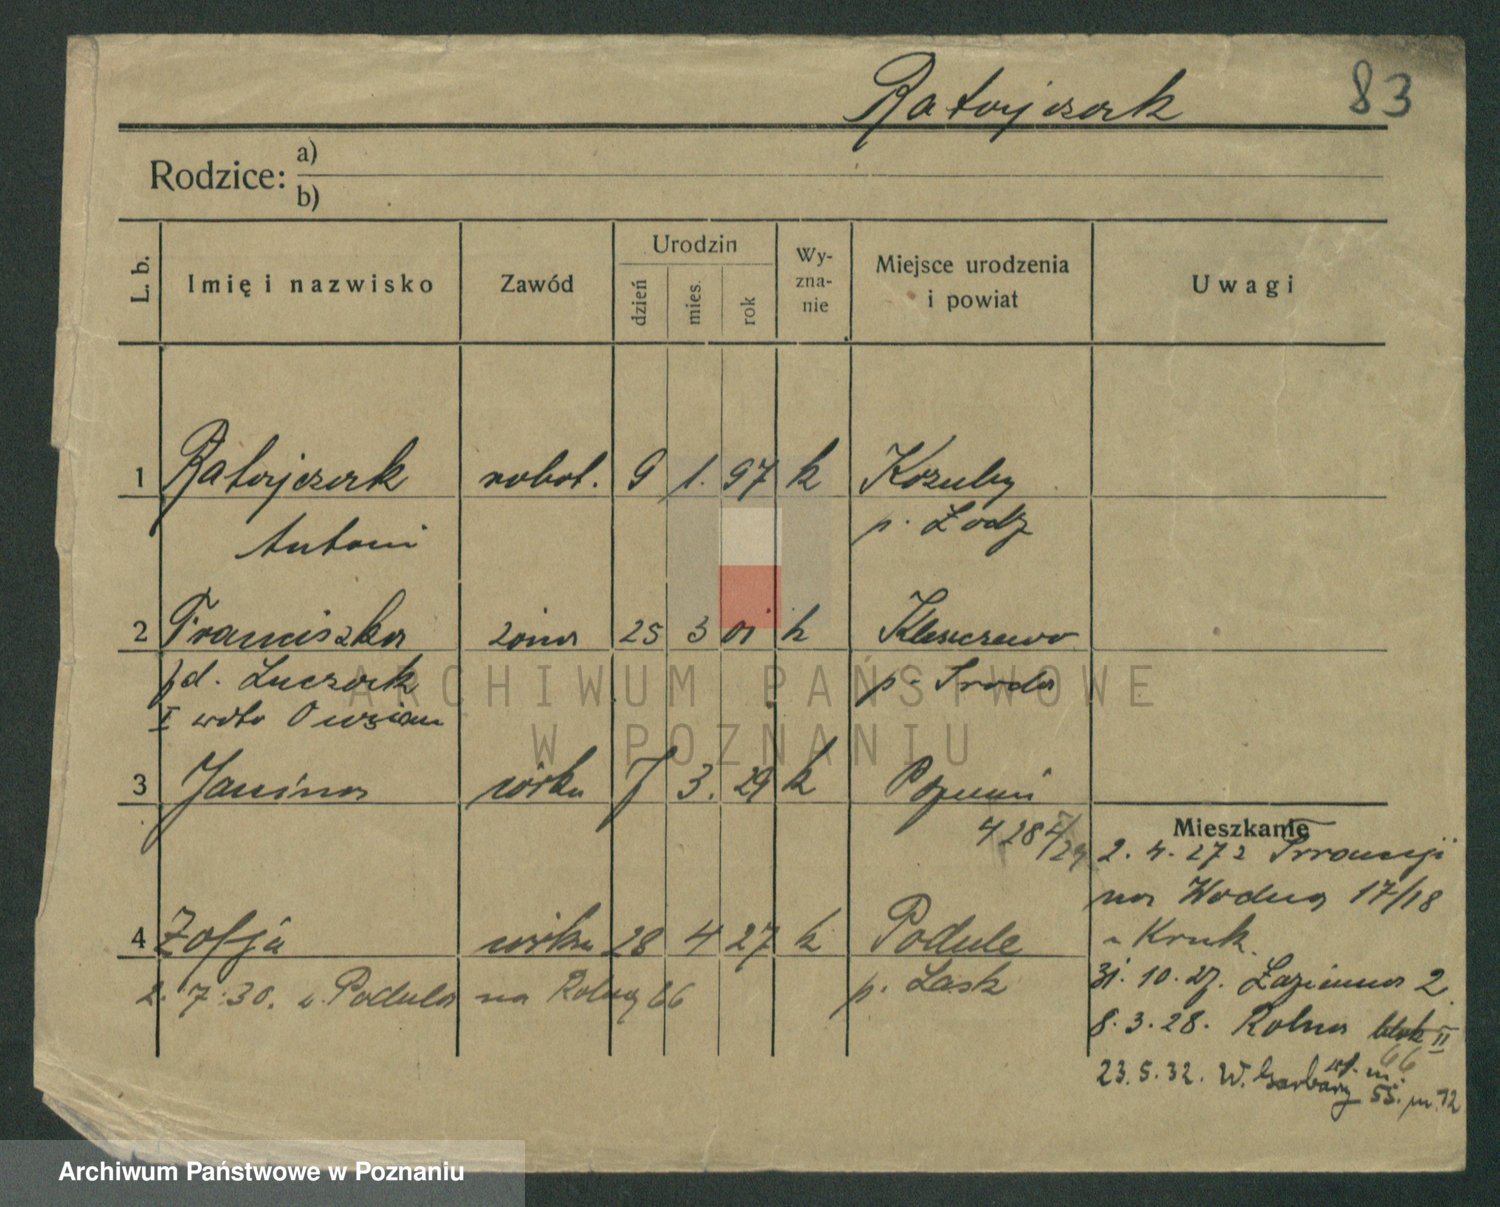 Ratajczak 83
Rodzice: a)
b)
L. b. Imię i nazwisko Zawód Urodzin dzień mies. rok Wy-zna-nie Miejsce urodzenia i powiat Uwagi
1 Ratajczak robot. 9 1. 97 k Kozuby
Antoni p. Łódź
2 Franciszka żona 25 3 01 k Kleszczewo
fd. Łuczak p. Środa
I wdto Owsian
3 Janina córka 7 3. 29 k Poznań
Mieszkanie
2. 4. 27 z
na Wodną 17/18
u Kruk.
4 Zofja córka 28 4 27 k Podule
p. Łask
2. 7. 30. z Podula na Rolną 66
31. 10. 27. Łazienna 2.
8. 3. 28. Rolna blok II
66
23. 5. 32. W. Garbary 55. m. 12
ARCHIWUM PAŃSTWOWE
W POZNANIU
Archiwum Państwowe w Poznaniu